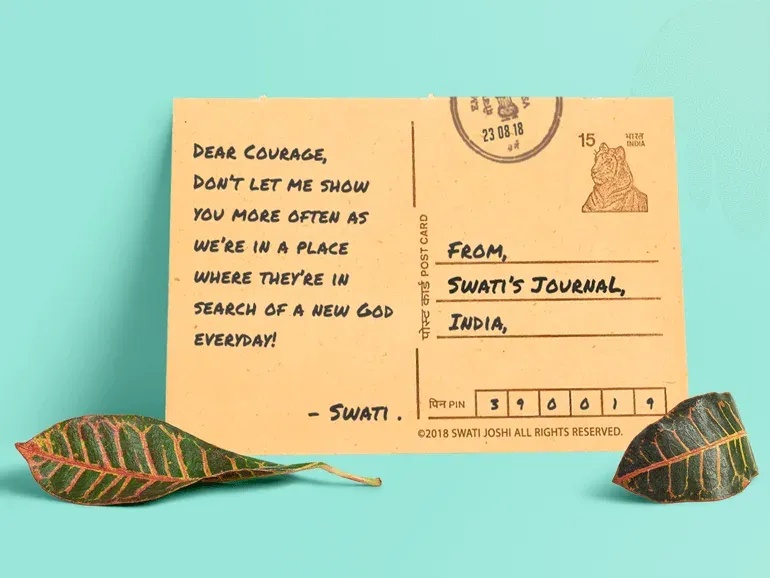 DEAR COURAGE,
DON'T LET ME SHOW
YOU MORE OFTEN AS
WE'RE IN A PLACE
WHERE THEY'RE IN
SEARCH OF A NEW GOD
EVERYDAY!
- SWATI .
पोस्ट कार्ड POST CARD
23 08 18
15 भारत
INDIA
FROM,
SWATI'S JOURNAL,
INDIA,
पिन PIN 3 9 0 0 1 9
©2018 SWATI JOSHI ALL RIGHTS RESERVED.